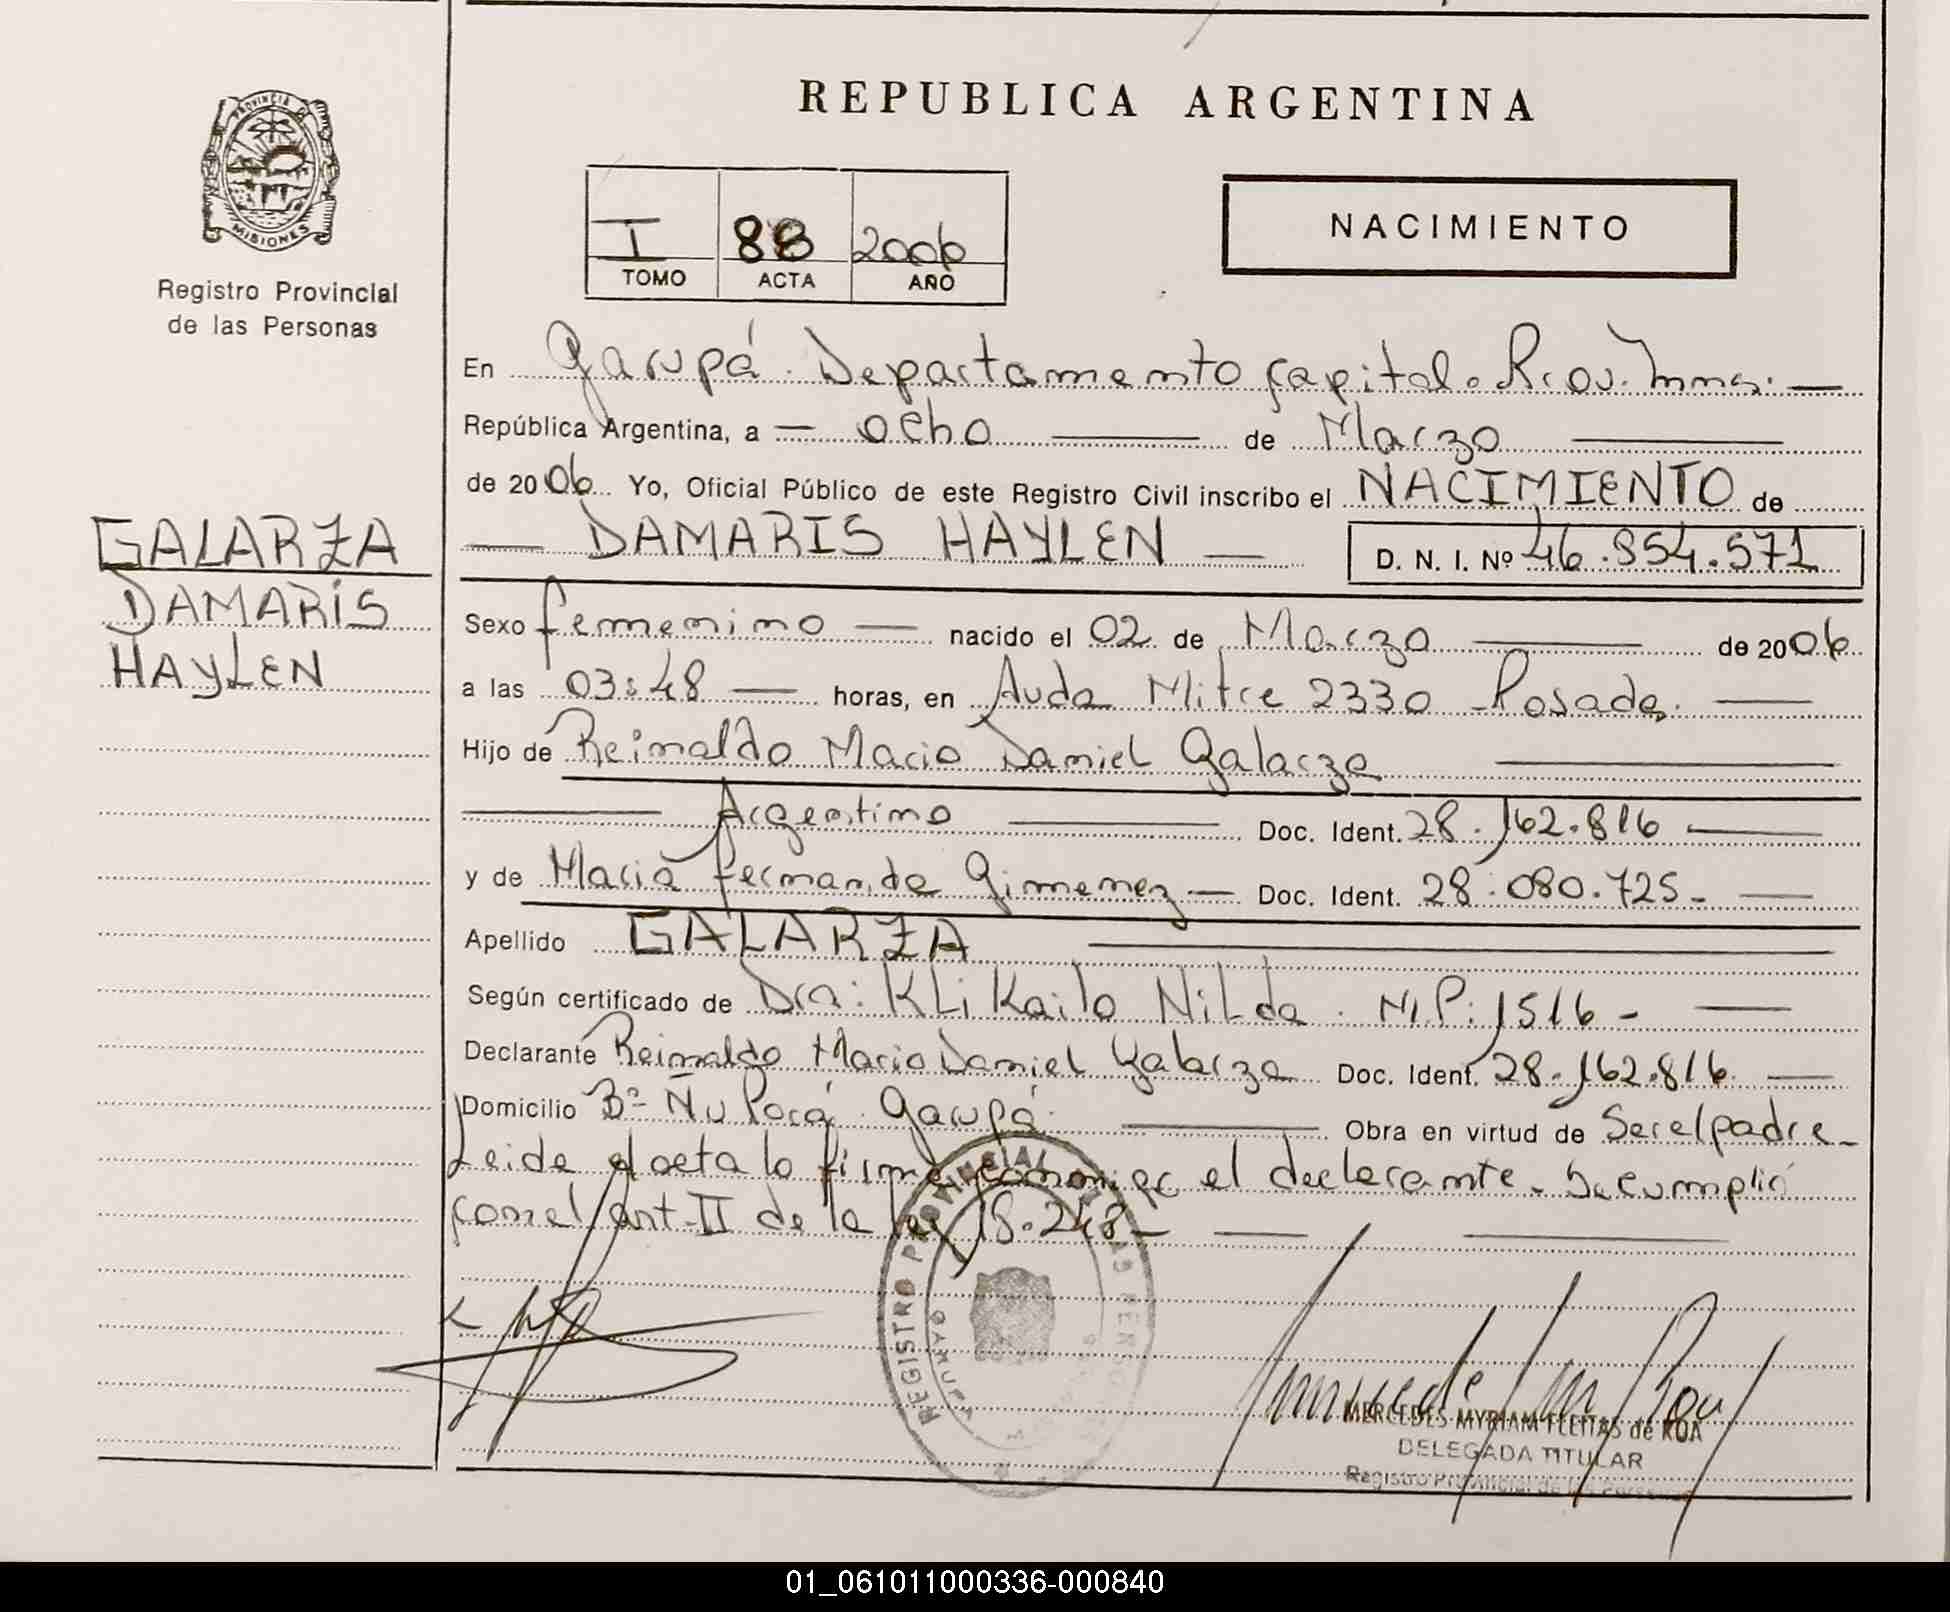 REPUBLICA ARGENTINA
PROVINCIA DE
MISIONES
Registro Provincial
de las Personas
I 88 2006
TOMO ACTA AÑO
NACIMIENTO
En Garupá Departamento Capital. Prov. Mnes. —
República Argentina, a — ocho — de Marzo —
de 2006 Yo, Oficial Público de este Registro Civil inscribo el NACIMIENTO de
— DAMARIS HAYLEN — D. N. I. Nº 46.854.571
GALARZA
DAMARIS
HAYLEN
Sexo femenino — nacido el 02 de Marzo — de 2006
a las 03:48 — horas, en Avda Mitre 2330 - Posadas. —
Hijo de Reinaldo Mario Daniel Galarza —
— Argentino — Doc. Ident. 28.162.816 —
y de Maria Fernanda Gimenez — Doc. Ident. 28.080.725- —
Apellido GALARZA —
Según certificado de Dra: KLiKailo NiLda. M.P: 1516 - —
Declarante Reinaldo Mario Daniel Galarza Doc. Ident. 28.162.816 —
Domicilio Bº Ñu Porá Garupá. — Obra en virtud de Ser el padre-
Leida el acta la firma conmigo el declarante. Se cumplió
con el art-II de la ley 18.248 — —
REGISTRO PROVINCIAL DE LAS PERSONAS
GARUPA
MERCEDES MYRIAM FLEITAS de ROA
DELEGADA TITULAR
Registro Provincial de las Personas
01_061011000336-000840